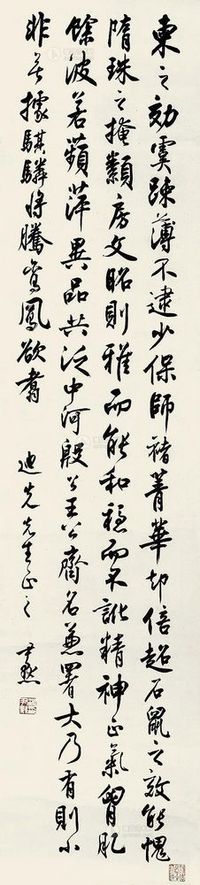 東之効虞踈薄不逮少保師褚菁華却倍超石鼠之效能愧
隋珠之掩纇房文昭則雅而能和穩而不訛精神正氣胷肊
餘波若蘋萍異品共泛中河殷公王公齊名兼署大乃有則小
非無據騏驎將騰鸞鳳欲翥 迪先先生正之 尹默